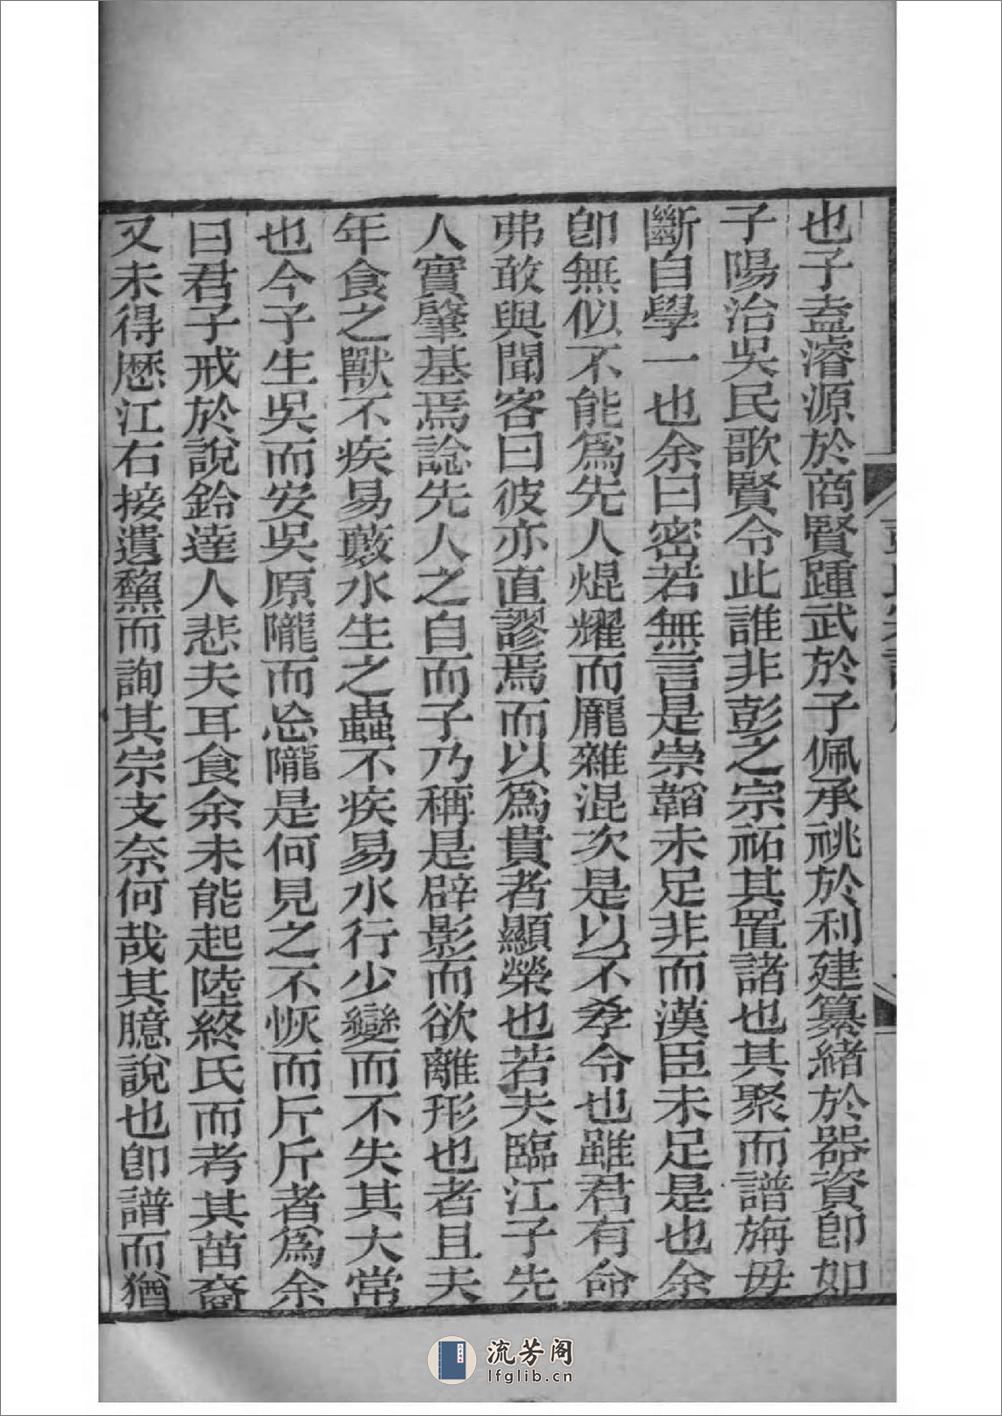 也子盍濬源於商賢踵武於子佩承祧於利建纂緒於器資卽如
子陽治吳民歌賢令此誰非彭之宗祏其置諸也其聚而譜旃毋
斷自學一也余曰密若無言是崇韜未足非而漢臣未足是也余
卽無似不能爲先人焜耀而厖雜混次是以不孝令也雖君有命
弗敢與聞客曰彼亦直謬焉而以爲貴者顯榮也若夫臨江子先
人實肇基焉諗先人之自而子乃稱是辟影而欲離形也者且夫
年食之獸不疾易藪水生之蟲不疾易水行少變而不失其大常
也今子生吳而安吳原隴而忩隴是何見之不恢而斤斤者爲余
曰君子戒於說鈴達人悲夫耳食余未能起陸終氏而考其苗裔
又未得歷江右接遺黧而詢其宗支奈何哉其臆說也卽譜而猶
流芳阁
lfglib.cn